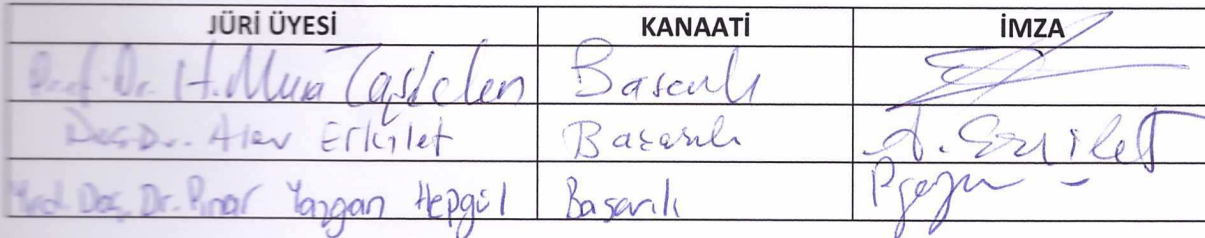 JÜRİ ÜYESİ KANAATİ İMZA
Prof. Dr. H. Musa Taşdelen Başarılı
Doç. Dr. Alev Erkilet Başarılı A. Erkilet
Yrd. Doç. Dr. Pınar Yazgan Hepgül Başarılı